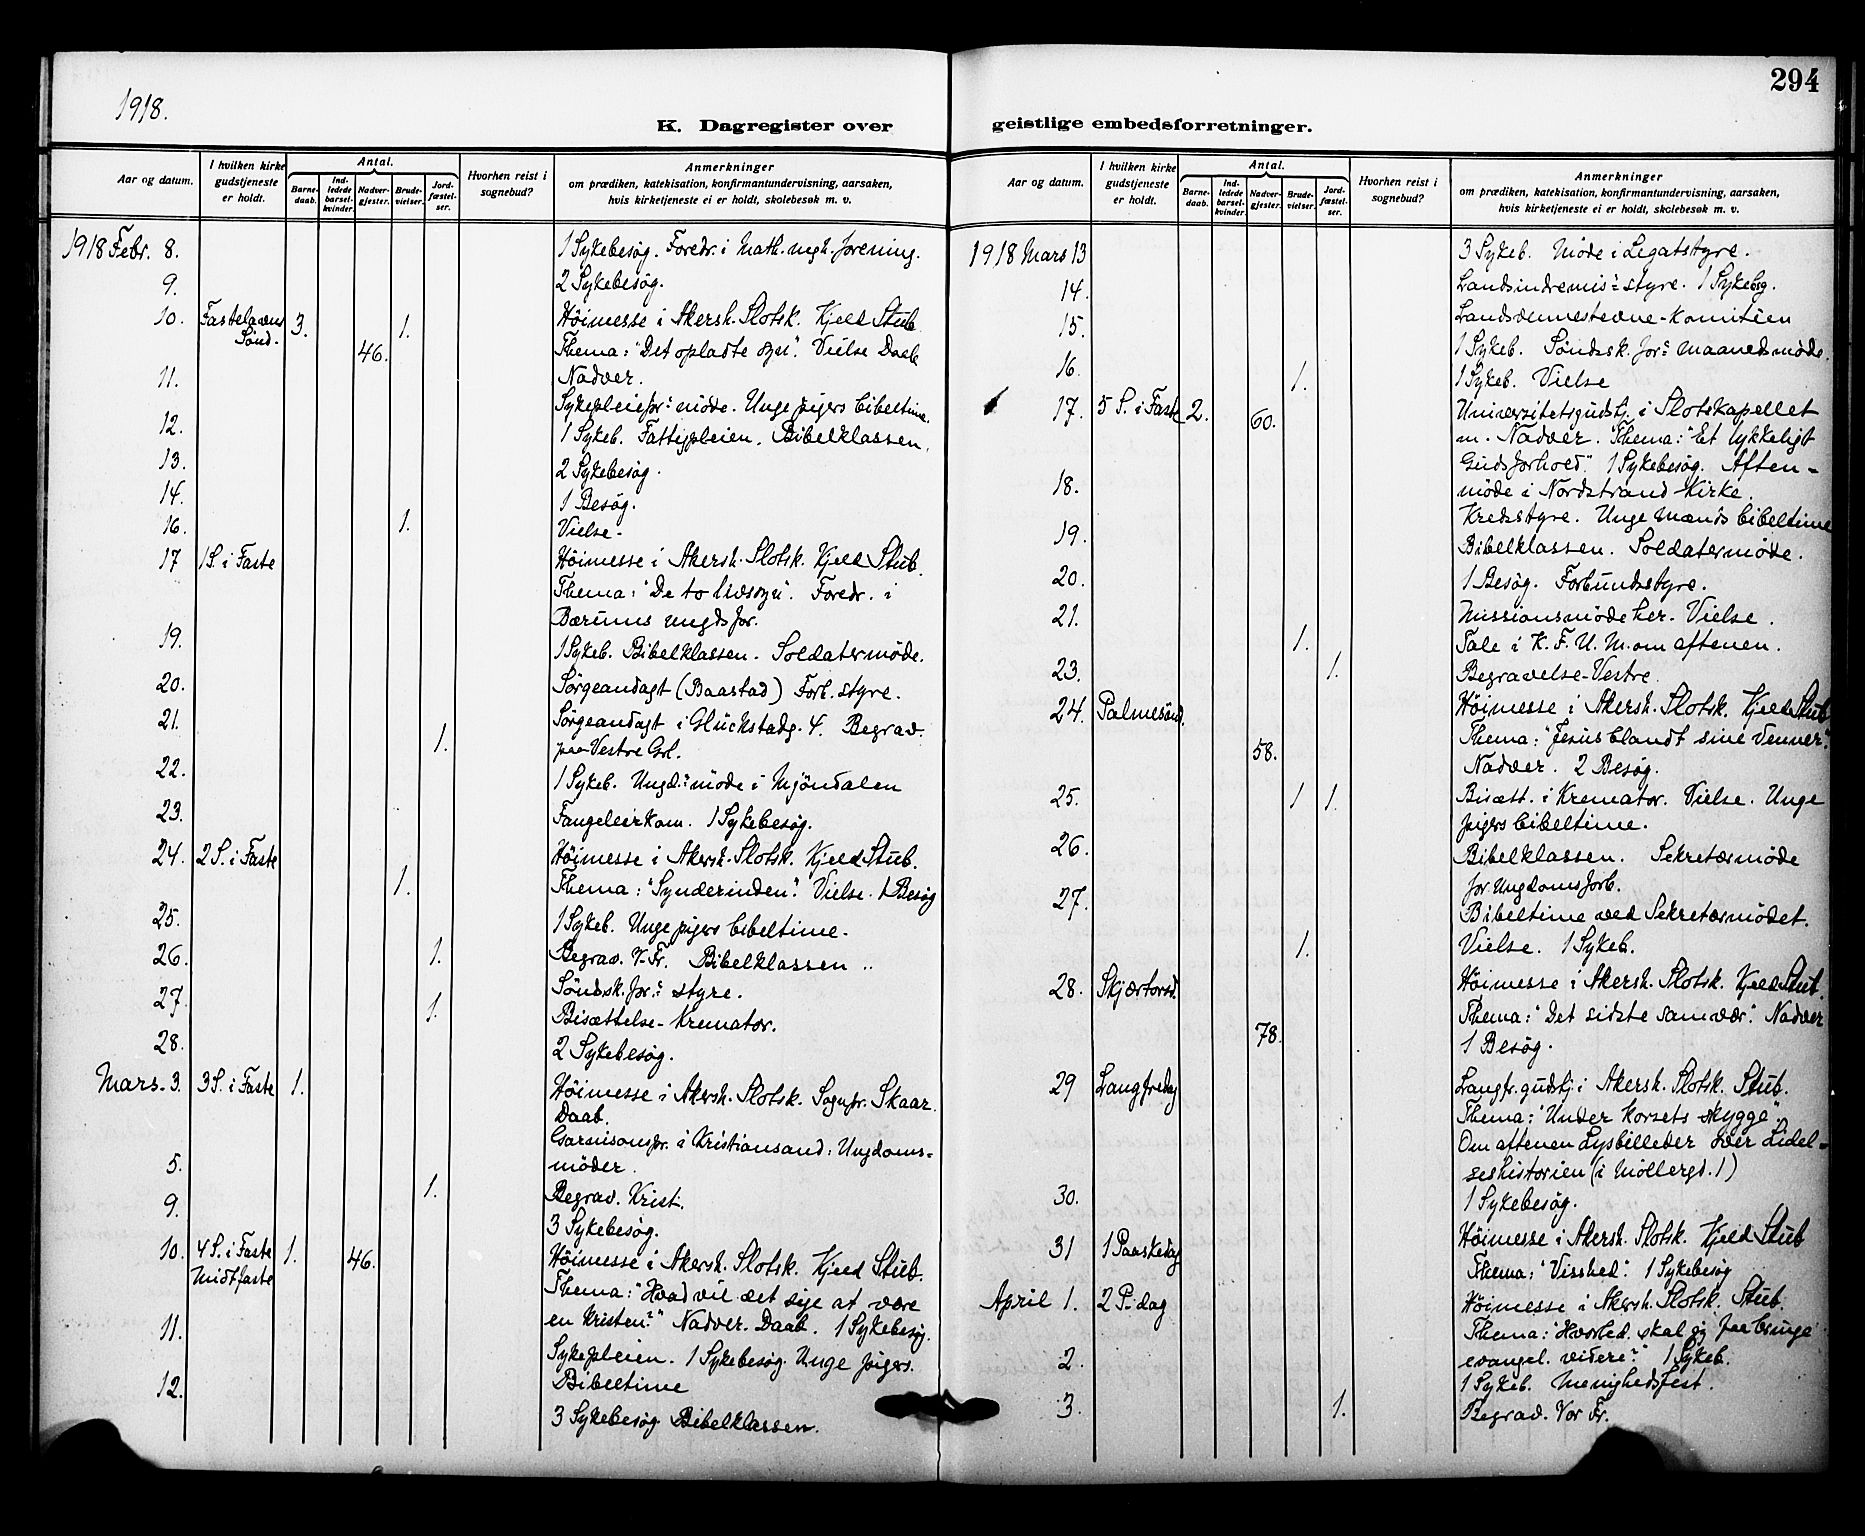 294
1918.
K. Dagregister over
geistlige embedsforretninger.
Aar og datum.
I hvilken kirke gudstjeneste er holdt.
Antal.
Barne-daab.
Ind-ledede barsel-kvinder.
Nadver-gjester.
Brude-vielser.
Jord-fæstel-ser.
Hvorhen reist i sognebud?
Anmerkninger
om prædiken, katekisation, konfirmantundervisning, aarsaken,
hvis kirketjeneste ei er holdt, skolebesøk m. v.
1918 Febr. 8. 1 Sykebesøg. Foredr. i Math. mgh. forening.
9. 2 Sykebesøg.
10. Fastelavns 3. 1. Höimesse i Akersh. Slotsk. Kjeld Stub
Sønd. 46. Thema: "Det opladte øye". Vielse Daab
Nadver.
11. Sykepleiefor: møde. Unge pigers bibeltime.
12. 1 Sykeb. Fattigpleien. Bibelklassen.
13. 2 Sykebesøg.
14. 1 Besøg.
16. 1. Vielse.
17 1 S. i Faste Höimesse i Akersh. Slotsk. Kjeld Stub.
Thema: "De to
Foredr. i
Bærums ungdsfor.
19. 1 Sykeb. Bibelklassen. Soldatermøde.
20. Sørgeandagt (Baastad) Forb. styre.
21. Sørgeandagt i Glückstadg. 4. Begrav.
1. paa Vestre Grl.
22. 1 Sykeb. Ungd:møde i Mjöndalen
23. Fangeleirkom. 1 Sykebesøg.
24. 2 S. i Faste Höimesse i Akersh. Slotsk. Kjeld Stub.
1. Thema: "Synderinden". Vielse. 1 Besøg
25. 1 Sykeb. Unge pigers bibeltime.
26. 1. Begrav. V. Fr. Bibelklassen
27. Søndsk. for: styre.
1. Bisættelse - Kremator.
28. 2 Sykebesøg.
Mars. 3. 3 S. i Faste 1. Höimesse i Akersh. Slotsk. Sognpr. Skaar.
Daab.
Garnisonspr. i Kristiansand: Ungdoms=
5. møder.
1. Begrav. Krist.
9. 3 Sykebesøg.
10. 4 S. i Faste 1. 46. Höimesse i Akersh. Slotsk. Kjeld Stub.
Midtfaste Thema: "Hvad vil det sige at være
en Kristen?" Nadver. Daab. 1 Sykebesøg.
11. Sykepleien. 1 Sykebesøg. Unge pigers
Bibeltime
12. 3 Sykebesøg Bibelklassen.
Aar og datum.
I hvilken kirke gudstjeneste er holdt.
Antal.
Barne-daab.
Ind-ledede barsel-kvinder.
Nadver-gjester.
Brude-vielser.
Jord-fæstel-ser.
Hvorhen reist i sognebud?
Anmerkninger
om prædiken, katekisation, konfirmantundervisning, aarsaken,
hvis kirketjeneste ei er holdt, skolebesøk m. v.
1918 Mars 13 3 Sykeb. Møde i Legatstyre.
14. Landsindremis: styre. 1 Sykebg.
15. Landsvennestevne-komitéen
1 Sykeb. Søndssk. for: maanedsmøde.
16. 1. 1 Sykeb. Vielse
17. 5 S. i Faste 2. 60. Universitetsgudstj. i Slotskapellet
m. Nadver. Thema: "Et lykkeligt
Gudsforhold". 1 Sykebesøg. Aften=
møde i Nordstrand Kirke.
18. Kredsstyre. Unge Mænds bibeltime
19. Bibelklassen. Soldatermøde.
20. 1 Besøg. Forbundsstyre.
21. Missionsmøde her. Vielse.
1. Tale i K. F. U. M. om aftenen.
23. 1. Begravelse - Vestre.
24. Palmesønd. Höimesse i Akersh. Slotsk. Kjeld Stub
Thema: "Jesus blandt sine Venner".
58. Nadver. 2 Besøg.
25. 1 1. Bisætt. i Kremator. Vielse. Unge
pigers bibeltime.
26. Bibelklassen. Sekretærmøde
for Ungdomsforb.
27. Bibeltime ved Sekretærmødet.
1. Vielse. 1 Sykeb.
28. Skjærtorsd. Höimesse i Akersh. Slotsk. Kjeld Stub.
Thema: "Det sidste samvær". Nadver
78. 1 Besøg.
29 Langfredag Langfr. gudstj. i Akersh. Slotsk. Stub.
Thema: "Under korsets skygge".
Om aftenen Lysbilleder over Lidel=
seshistorien (i Möllergd. 1)
30. 1 Sykebesøg.
31 1 Paaskedag Höimesse i Akersh. Slotsk. Kjeld Stub
Thema: "Visshed". 1 Sykebesøg
April 1. 2 P-dag Höimesse i Akersh. Slotsk. Stub.
Thema: "Hvorled. skal
bringe
evangel. videre?" 1 Sykeb.
2. 1 Sykeb. Menighedsfest.
3. 1. Begrav. Vor Fr.